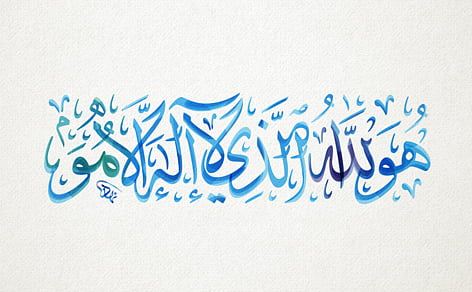 هُوَ اللهُ الَّذِي لَا إِلَٰهَ إِلَّا هُوَ